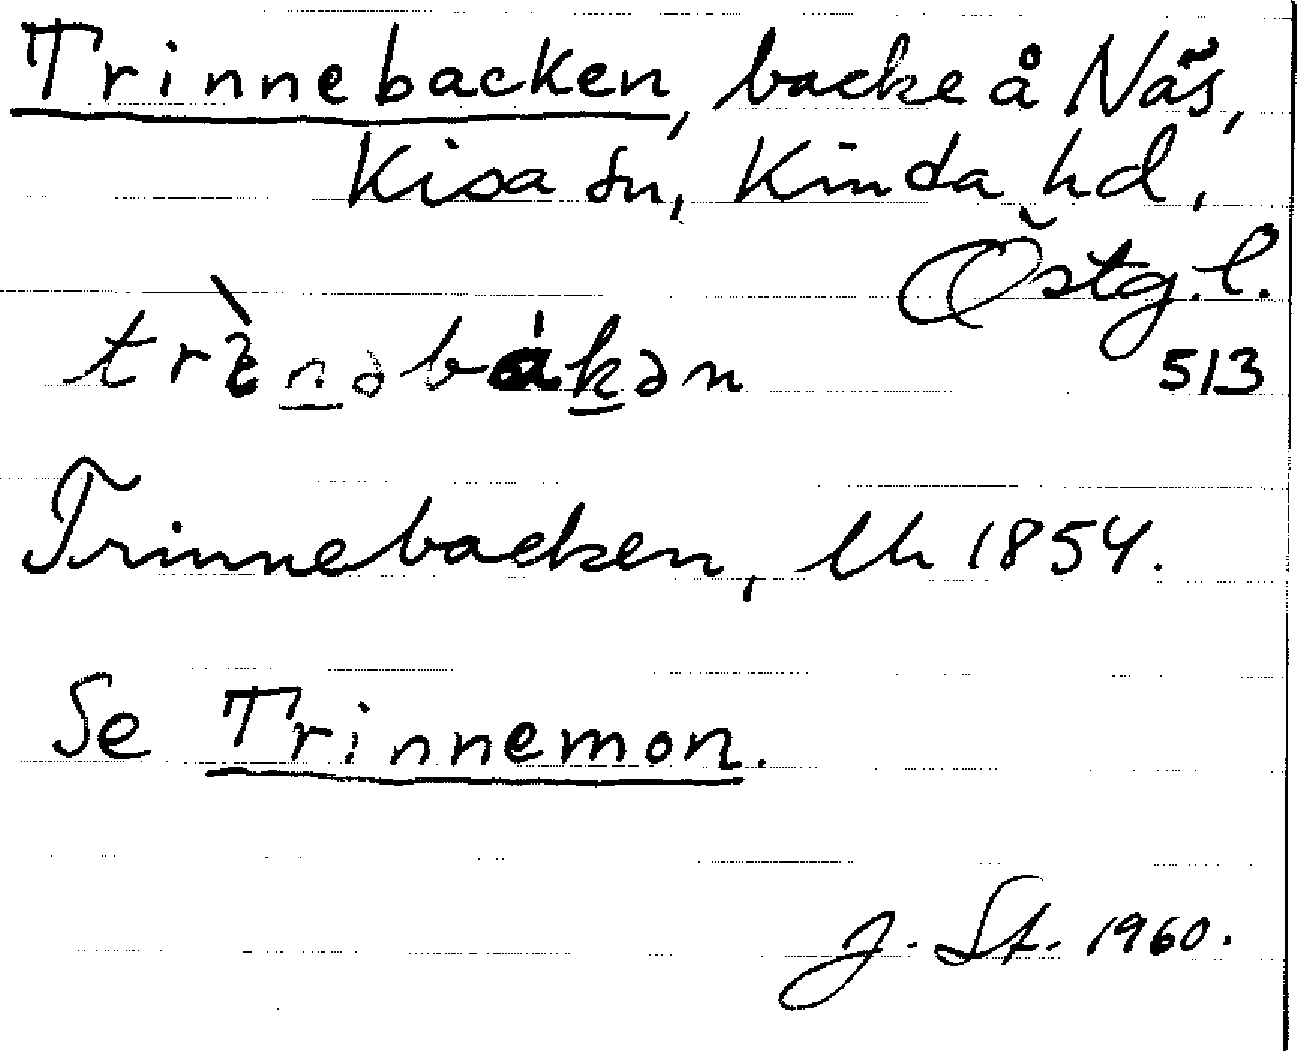 Trinnebacken, backe å Näs,
Kisa sn, Kinda hd,
Östg. l.
513
Trinnebacken, Uh 1854.
Se Trinnemon.
J. St. 1960.